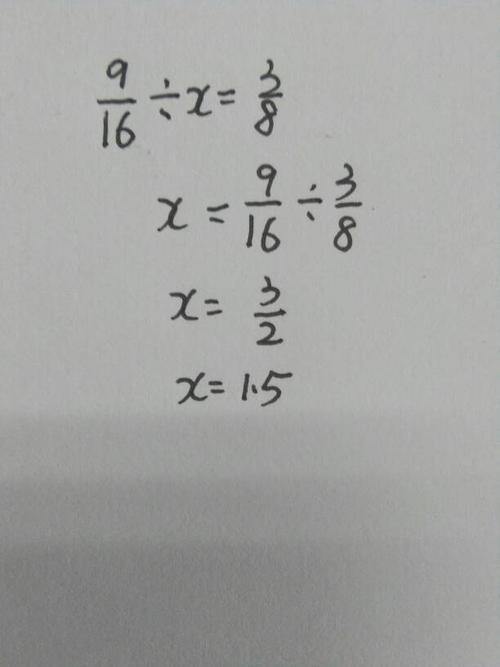 9/16 ÷ x = 3/8
x = 9/16 ÷ 3/8
x = 3/2
x = 1.5